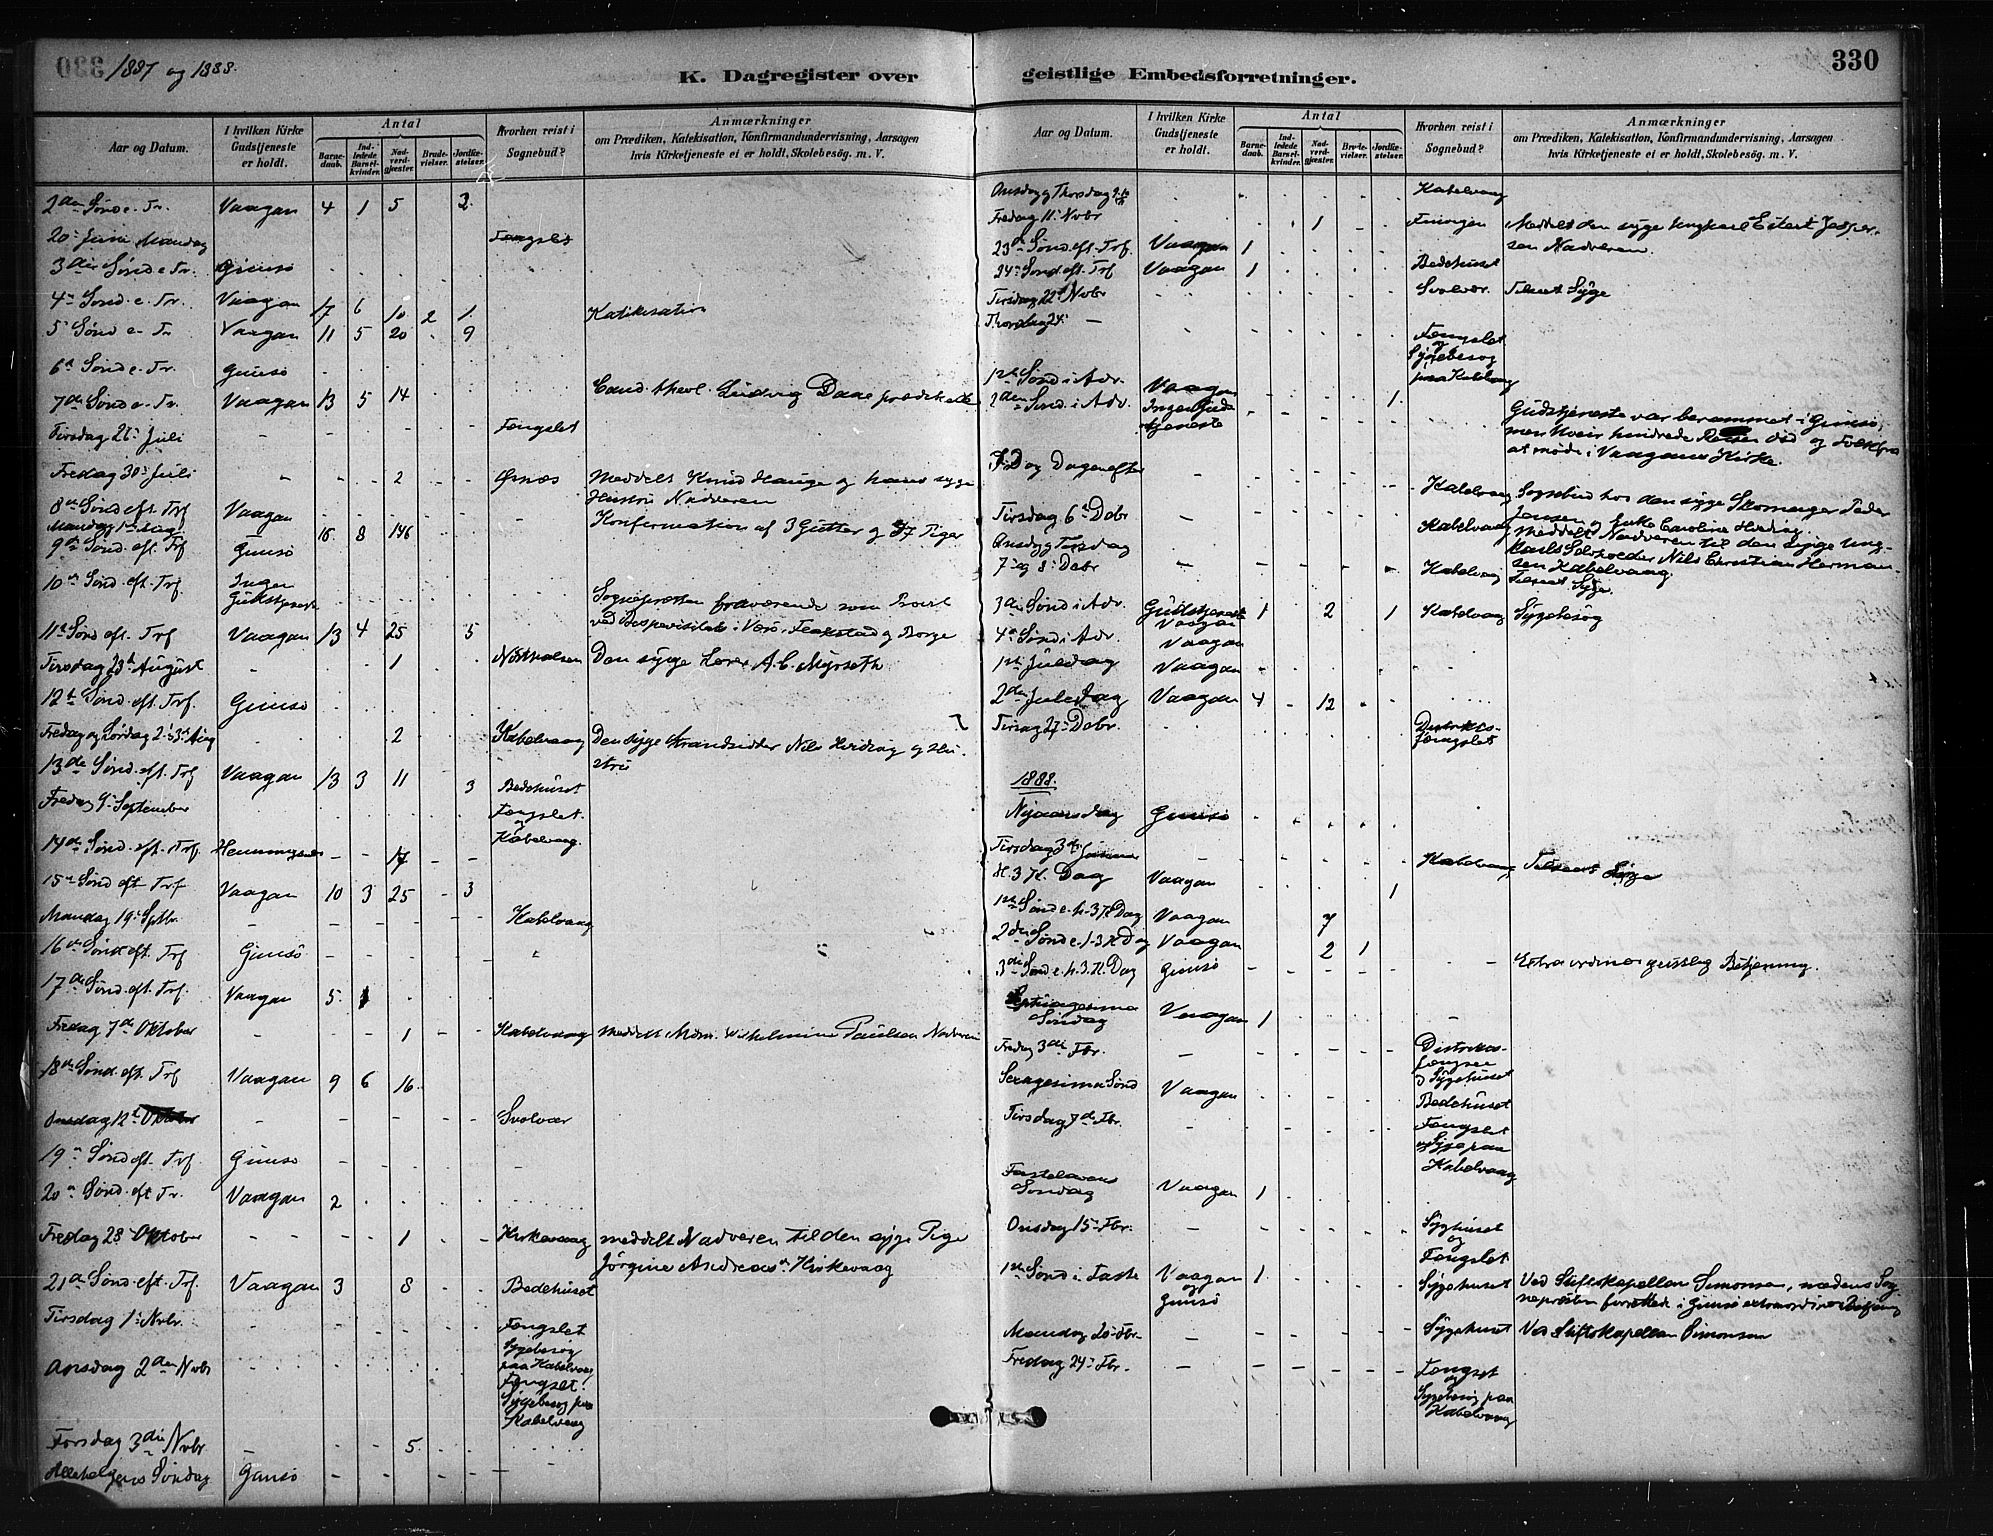 330
1887 og 1888.
K. Dagregister over geistlige Embedsforretninger.
330
Aar og Datum.
I hvilken Kirke Gudstjeneste er holdt.
Antal
Barnedaab.
Indledede Barselkvinder.
Nadverdgjester.
Brudevielser.
Jordfæstelser.
Hvorhen reist i Sognebud?
Anmærkninger
om Prædiken, Katekisation, Konfirmandundervisning, Aarsagen
hvis Kirketjeneste ei er holdt, Skolebesøg. m. V.
2den Sønd e. Tr. Vaagan 4 1 5 2.
20de Juni Mandag Fængslet
3die Sønd e Tr. Gimsø
4de Sønd. e. Tr. Vaagan 17 6 10 2 1. Katekisation
5te Sønd e. Tr Vaagan 11 5 20 9
6te Sønd e. Tr. Gimsø
7de Sønd e. Tr. Vaagan 13 5 14 Cand. theol. Ludvig Daae prædikede
Tirsdag 26de Juli Fængslet
Fredag 30te Juli 2 Ørnæs Meddelt Knud Hauge og hans syge
Hustru Nadveren
8de Sønd eft. Trf Vaagan
Mandag 1ste Aug 16 8 146 Konfirmation af 3 Gutter og 37 Piger
9de Sønd. eft. Trf Gimsø
10de Sønd. eft. Trf Ingen Gudstjeneste Sognepræsten fraværende som Provst
ved Bispevisitats i Værø, Flakstad og Borge
11te Sønd eft. Trf Vaagan 13 4 25 5
Tirsdag 23de August 1 Den syge Lærer A. C. Myrseth
12te Sønd eft. Trf. Gimsø
Fredag og Lørdag 2-3 Aug 2 Kabelvaag Den syge Strandsidder Nils Hvidvag og Hu-
stru
13de Sønd. eft. Trf Vaagan 13 3 11 3 Bedehuset
Fredag 9de September Fængslet
og
Kabelvaag
14de Sønd. eft. Trf. Henningsvær 17
15de Sønd eft Trf Vaagan 10 3 25 3
Mandag 19de Sptbr. Kabelvaag
16de Sønd eft. Trf Gimsø
17de Sønd. eft. Trf. Vaagan 5. 1
Fredag 7de Oktober 1 Kabelvaag Meddelt Mdm. Wilhelmine Paulsen Nadveren
18de Sønd. eft. Trf Vaagan 9 6 16
Onsdag 12te Oktober Svolvær
19de Sønd eft. Trf. Gimsø
20de Sønd. eft Tr. Vaagan 2
Fredag 28 Oktober 1 Kirkevaag meddelt Nadveren til den syge Pige
Jørgine Andreas. Kirkevaag
21de Sønd. eft. Trf. Vaagan 3 8 Bedehuset
Tirsdag 1ste Nvbr. Fængslet
Sygebesøg
paa Kabelvaag
Onsdag 2den Nvbr Fængslet
Sygebesøg paa
Kabelvaag
Torsdag 3die Nvbr 5
Allehelgens Søndag Gimsø
Aar og Datum.
I hvilken Kirke Gudstjeneste er holdt.
Antal
Barnedaab.
Indledede Barselkvinder.
Nadverdgjester.
Brudevielser.
Jordfæstelser.
Hvorhen reist i Sognebud?
Anmærkninger
om Prædiken, Katekisation, Konfirmandundervisning, Aarsagen
hvis Kirketjeneste ei er holdt, Skolebesøg. m. V.
Onsdag og Thorsdag 9-10 Kabelvaag
Fredag 11te Nvbr 1 Meddelt den syge Ungkarl Eilert Jesper-
sen Nadveren.
23de Sønd eft. Trf. Vaagan 1
24de Sønd. eft. Trf Vaagan 1 Bedehuset
Tirsdag 22de Nvbr Svolvær. Tilseet Syge
Thorsdag 24de Fængslet
og
Sygebesøg
paa Kabelvaag
1ste Sønd i Adv. Vaagan 1.
2den Sønd. i Adv. Ingen Gudstjeneste Gudstjeneste var berammet i Gimsø,
men Uveir hindrede Reisen did og Folk fra
at møde i Vaagans Kirke.
Dag Dagen efter Kabelvaag Sognebud hos den syge Skomager Peder
Jensen og Enke Caroline Hvidvag.
Tirsdag 6te Dcbr Kabelvaag Meddelt Nadveren til den syge Ung-
karl Nils Christian Herman-
sen Kabelvaag.
Onsdag og Torsdag
7de og 8de Dcbr Kabelvaag Tilseet Syge
3die Sønd i Adv. Gudstjeneste Vaagan 1 2 1 Kabelvaag Sygebesøg
4de Sønd i Adv Vaagan
1ste Juledag Vaagan
2den Juledag Vaagan 4 12
Tirsdag 27de Dcbr. Distrikts-
fængslet
1888.
Nyaarsdag Gimsø
Tirsdag 3die Januar Kabelvaag Tilseet Syge
H. 3 K. Dag Vaagan 1
1ste Sønd e. h. 3 K Dag Vaagan 7
2den Sønd e. h. 3 K Dag Vaagan 2 1
3die Sønd e. h. 3. K. Dag Gimsø Extraordinær geistlig Betjening.
Septuagesima
Søndag Vaagan 1
Fredag 3die Fbr. Distrikts-
fængslet
og Sygehuset
Sexagesima Sønd Vaagan Bedehuset
Tirsdag 7de Fbr. Fængslet
og Syge paa
Kabelvaag
Fastelavns
Søndag Vaagan 1
Onsdag 15de Fbr. Sygehuset
og
Fængslet
1ste Sønd i Faste Vaagan og Gimsø 1 Sygehuset Ved Stiftskapellan Simonsen, medens Sog-
nepræsten forrettede i Gimsø extraordinær Betjening
Mandag 20de Fbr. Sygehuset Ved Stiftskapellan Simonsen
Fredag 24de Fbr. Fængslet
og
Sygebesøg paa
Kabelvaag